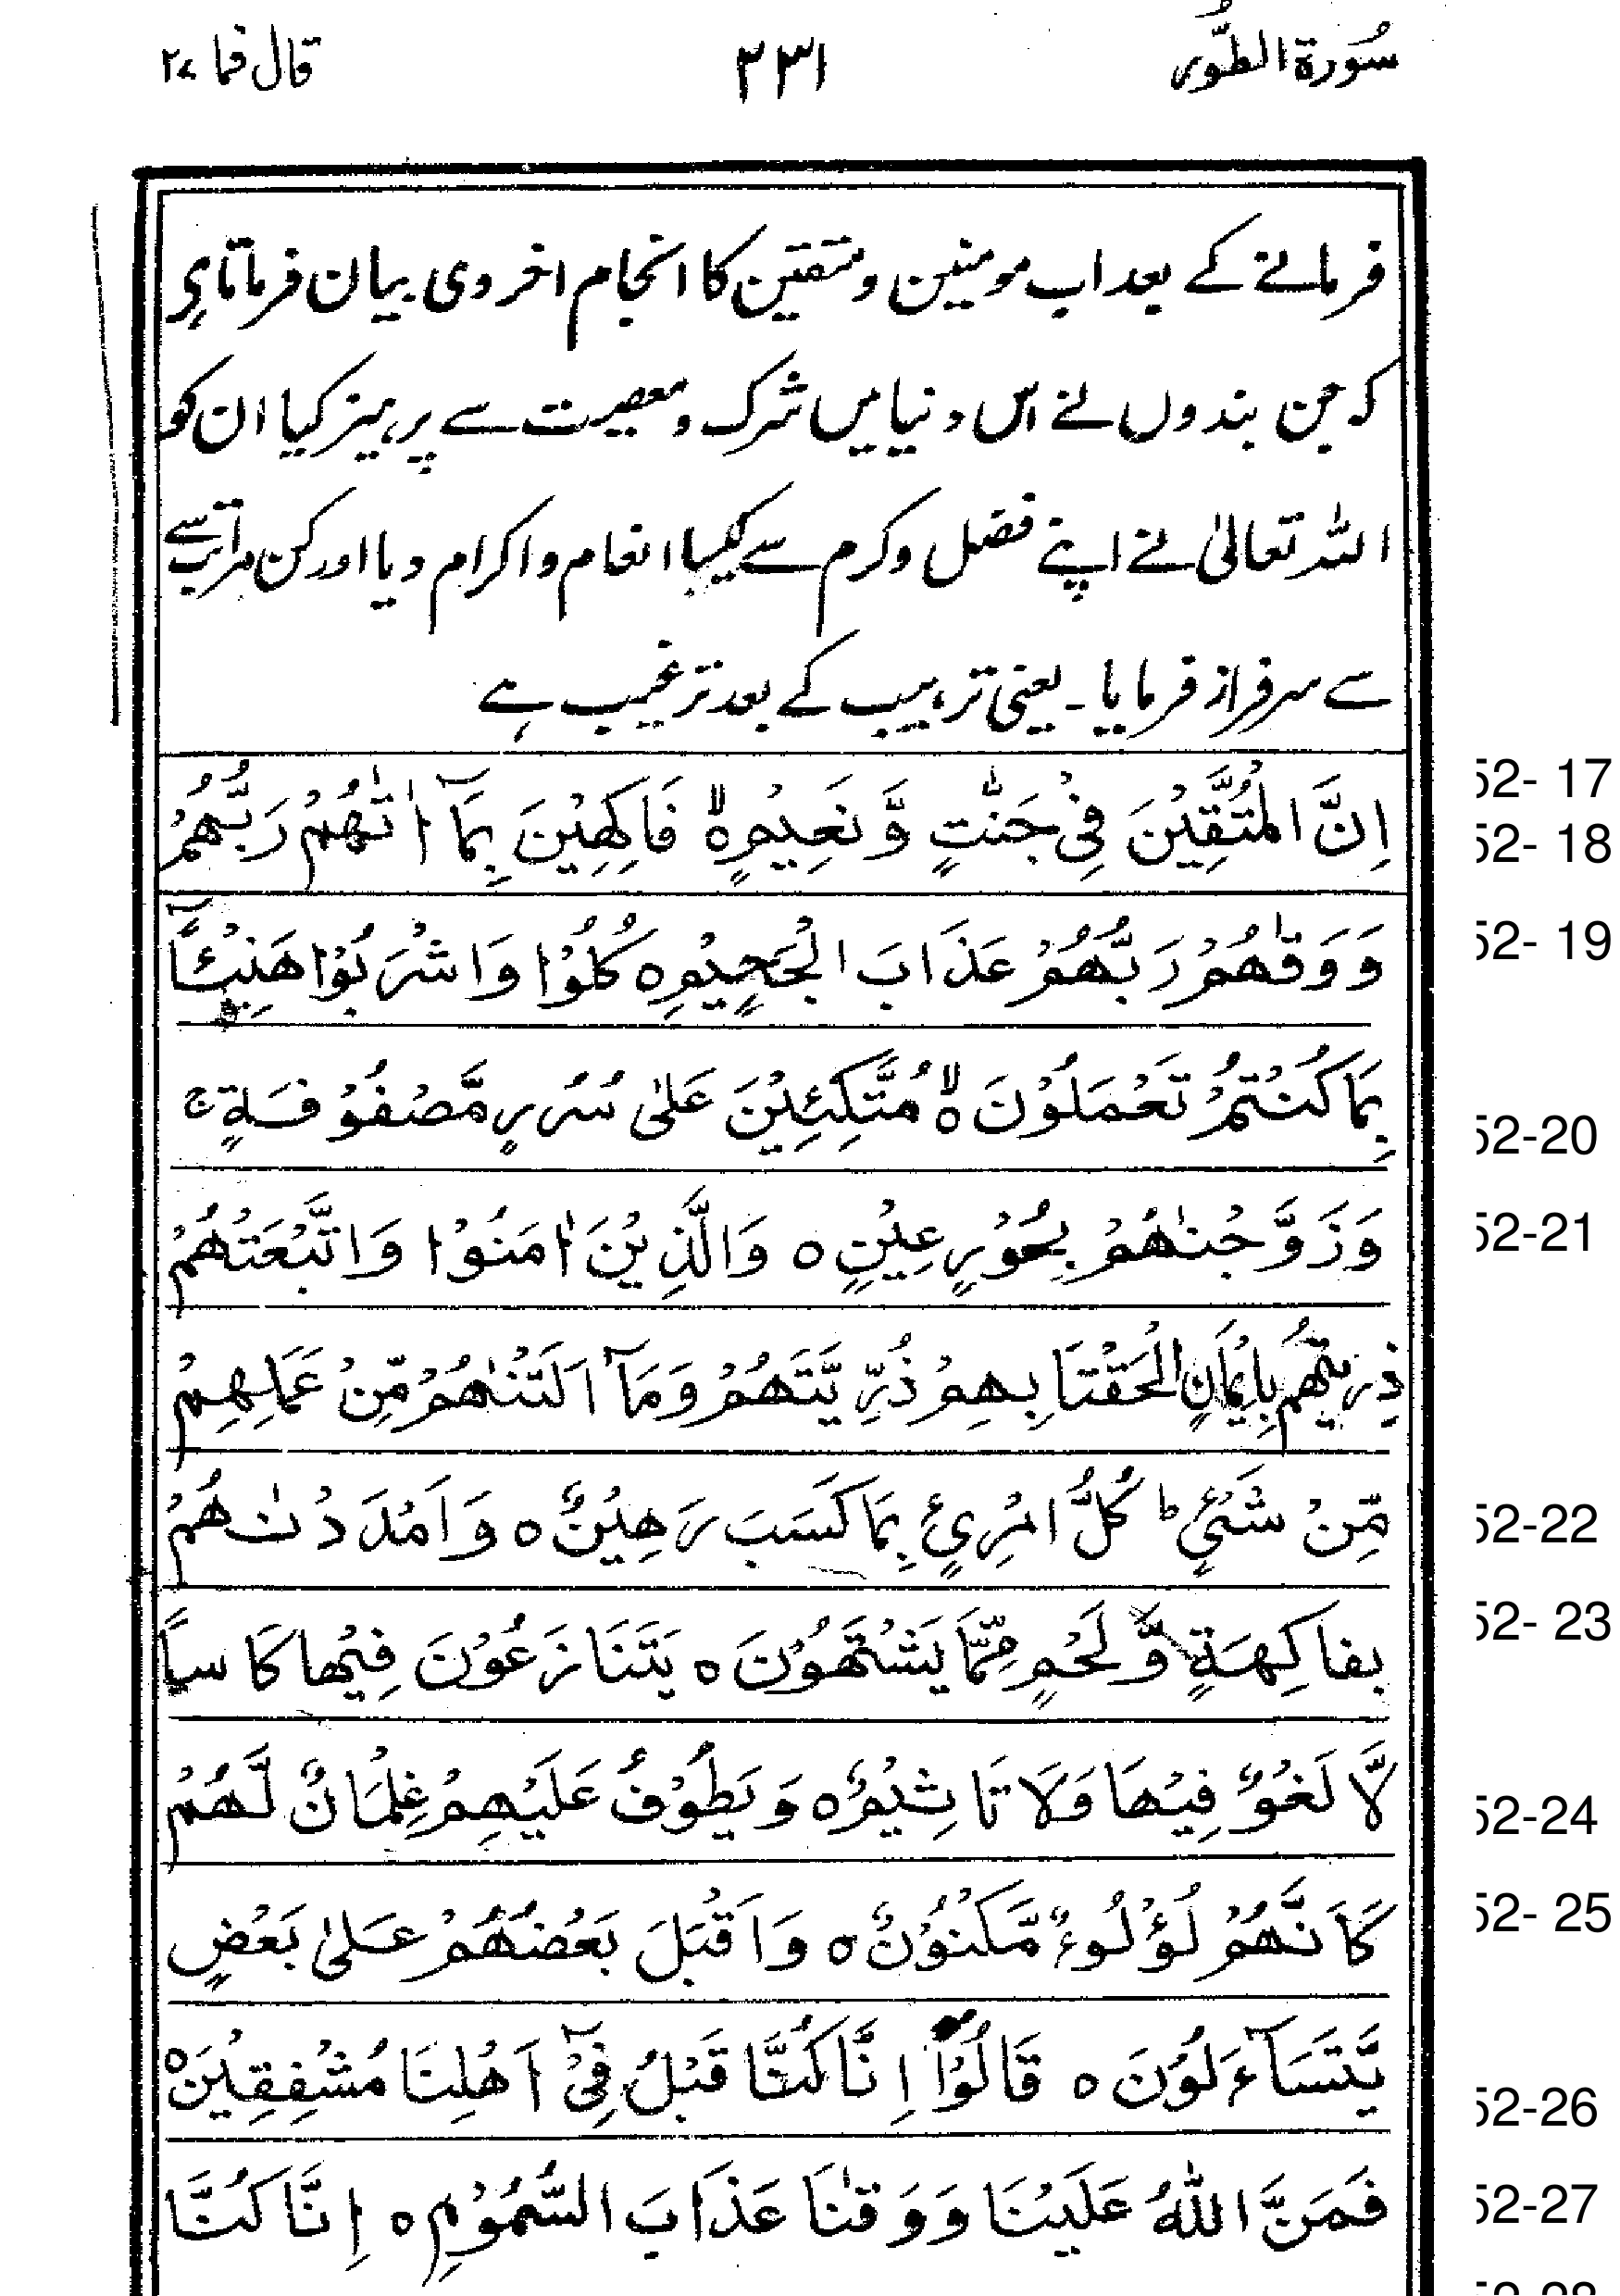 سُورة الطُّور ٢٣١ قال فما ٢٧
فرمانے کے بعد اب مومنین و متقین کا انجام اخروی بیان فرماتا ہے
کہ جن بندوں نے اس دنیا میں شرک و معصیت سے پرہیز کیا ان کو
اللہ تعالیٰ نے اپنے فضل و کرم سے کیسا انعام و اکرام دیا اور کن مراتب سے
سے سرفراز فرمایا۔ یعنی ترہیب کے بعد ترغیب ہے
اِنَّ الْمُتَّقِيْنَ فِيْ جَنّٰتٍ وَّ نَعِيْمٍ ۙ فَاكِهِيْنَ بِمَآ اٰتٰهُمْ رَبُّهُمْ
52- 17
52- 18
وَ وَقٰهُمْ رَبُّهُمْ عَذَابَ الْجَحِيْمِ ہ كُلُوْا وَاشْرَبُوْا هَنِيْٓئًا
52- 19
بِمَا كُنْتُمْ تَعْمَلُوْنَ ہۙ مُتَّكِئِيْنَ عَلٰى سُرُرٍ مَّصْفُوْفَةٍ ۚ
52-20
وَ زَوَّجْنٰهُمْ بِحُوْرٍ عِيْنٍ ہ وَالَّذِيْنَ اٰمَنُوْا وَاتَّبَعَتْهُمْ
52-21
ذُرِّيَّتُهُمْ بِاِيْمَانٍ اَلْحَقْنَا بِهِمْ ذُرِّيَّتَهُمْ وَمَآ اَلَتْنٰهُمْ مِّنْ عَمَلِهِمْ
مِّنْ شَيْءٍ ط كُلُّ امْرِئٍ بِمَا كَسَبَ رَهِيْنٌ ہ وَ اَمْدَدْنٰهُمْ
52-22
بفاكِهَةٍ وَّ لَحْمٍ مِّمَّا يَشْتَهُوْنَ ہ يَتَنَازَعُوْنَ فِيْها كَاساً
52- 23
لَّا لَغْوٌ فِيْهَا وَلَا تَاثِيْمٌ ہ وَ يَطُوْفُ عَلَيْهِمْ غِلْمَانٌ لَّهُمْ
52-24
كَاَنَّهُمْ لُؤْلُوءٌ مَّكْنُوْنٌ ہ وَاَقْبَلَ بَعْضُهُمْ عَلٰى بَعْضٍ
52- 25
يَّتَسَآءَلُوْنَ ہ قَالُوْٓا اِنَّا كُنَّا قَبْلُ فِيْٓ اَهْلِنَا مُشْفِقِيْنَ ہ
52-26
فَمَنَّ اللّٰهُ عَلَيْنَا وَ وَقٰنَا عَذَابَ السَّمُوْمِ ہ اِنَّا كُنَّا
52-27